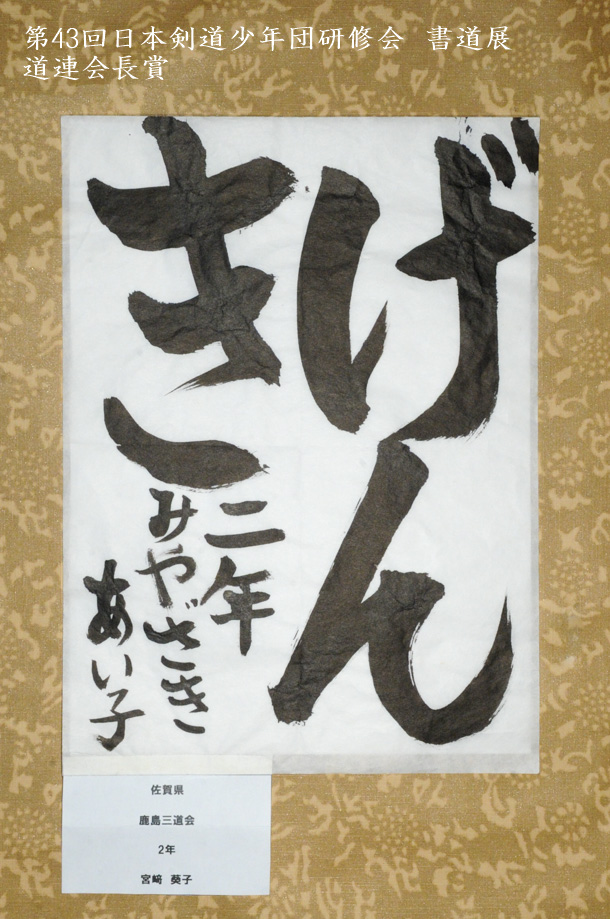 第43回日本剣道少年団研修会 書道展
道連会長賞
げん
き
二年
みやざき
あい子
佐賀県
鹿島三道会
2年
宮﨑 葵子